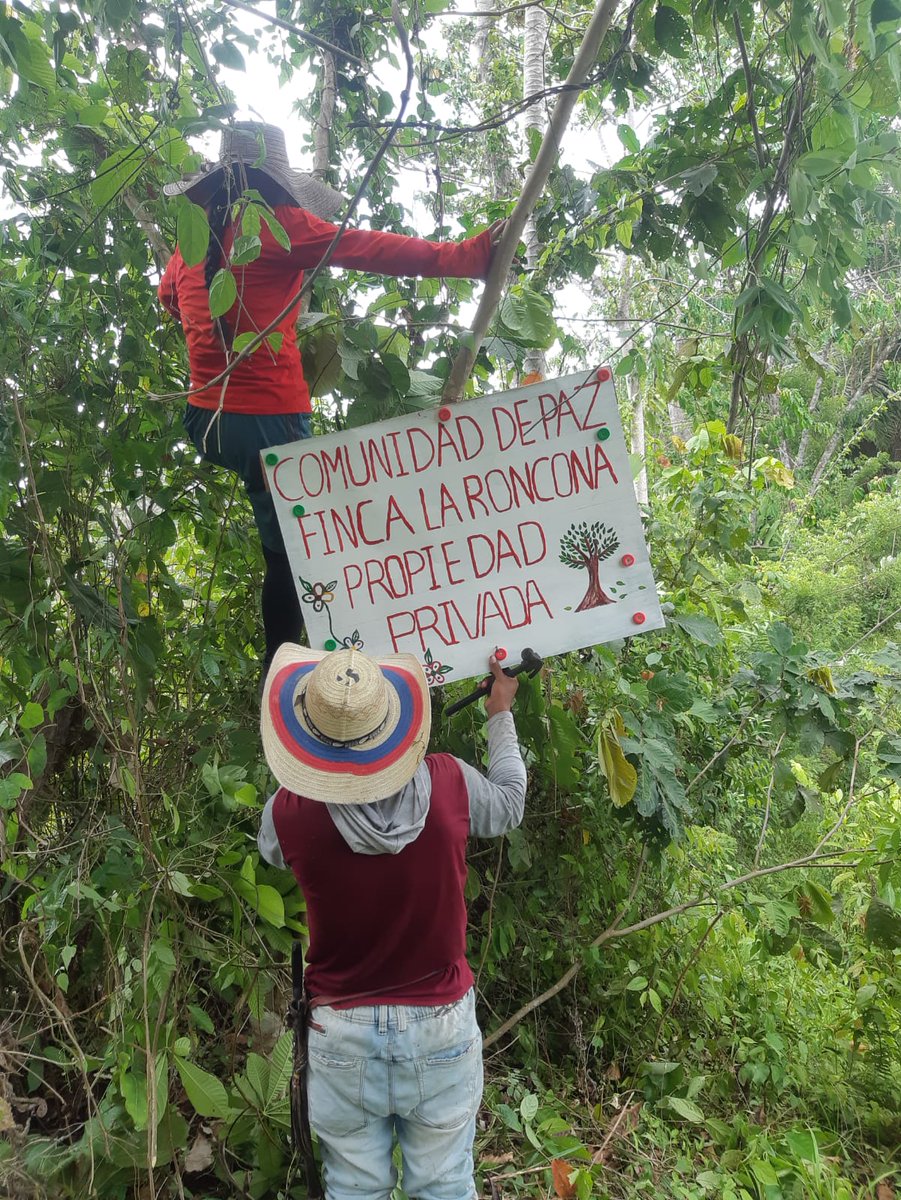 COMUNIDAD DE PAZ
FINCA LA RONCONA
PROPIEDAD
PRIVADA